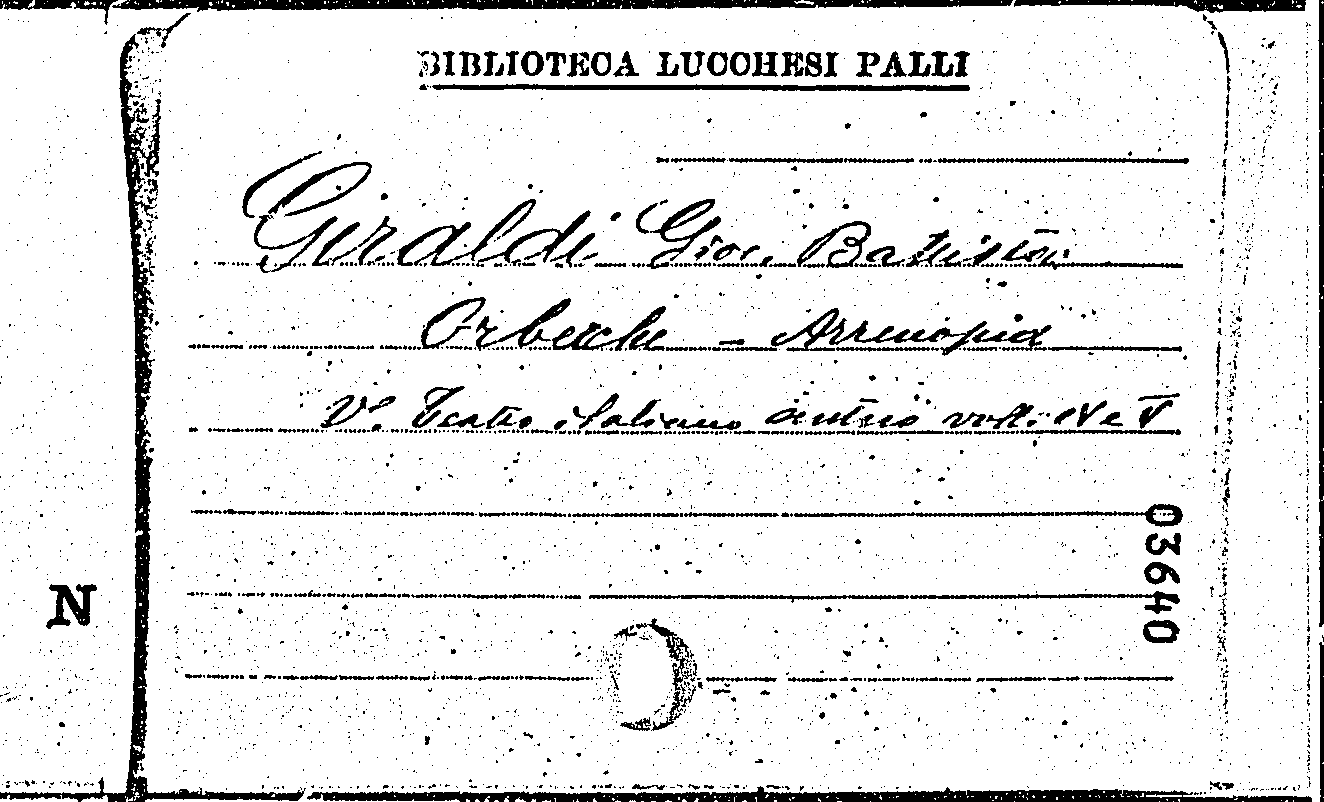 BIBLIOTECA LUCCHESI PALLI
Giraldi Giov. Battista
Orbecche - Arrenopia
V. Teatro italiano antico voll. IV e V
03640
N